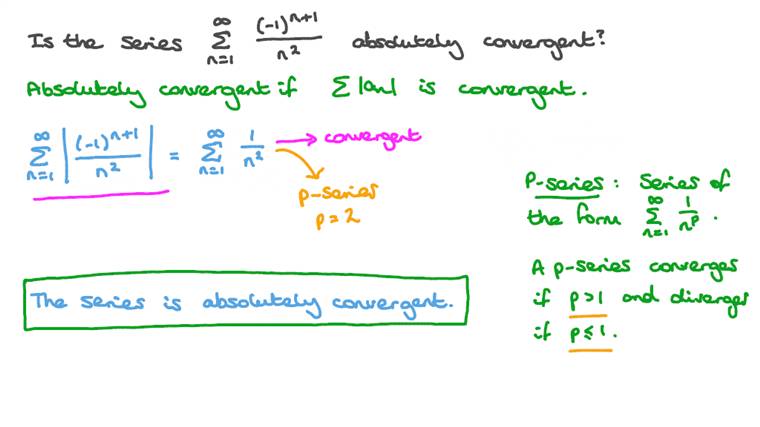 Is the series ∞∑n=1 (-1)^(n+1)/n² absolutely convergent?
Absolutely convergent if Σ|an| is convergent.
∞∑n=1 |(-1)^(n+1)/n²| = ∞∑n=1 1/n² → convergent
p-series
p = 2
P-series: Series of
the form ∞∑n=1 1/n^p.
A p-series converges
if p>1 and diverges
if p≤1.
The series is absolutely convergent.